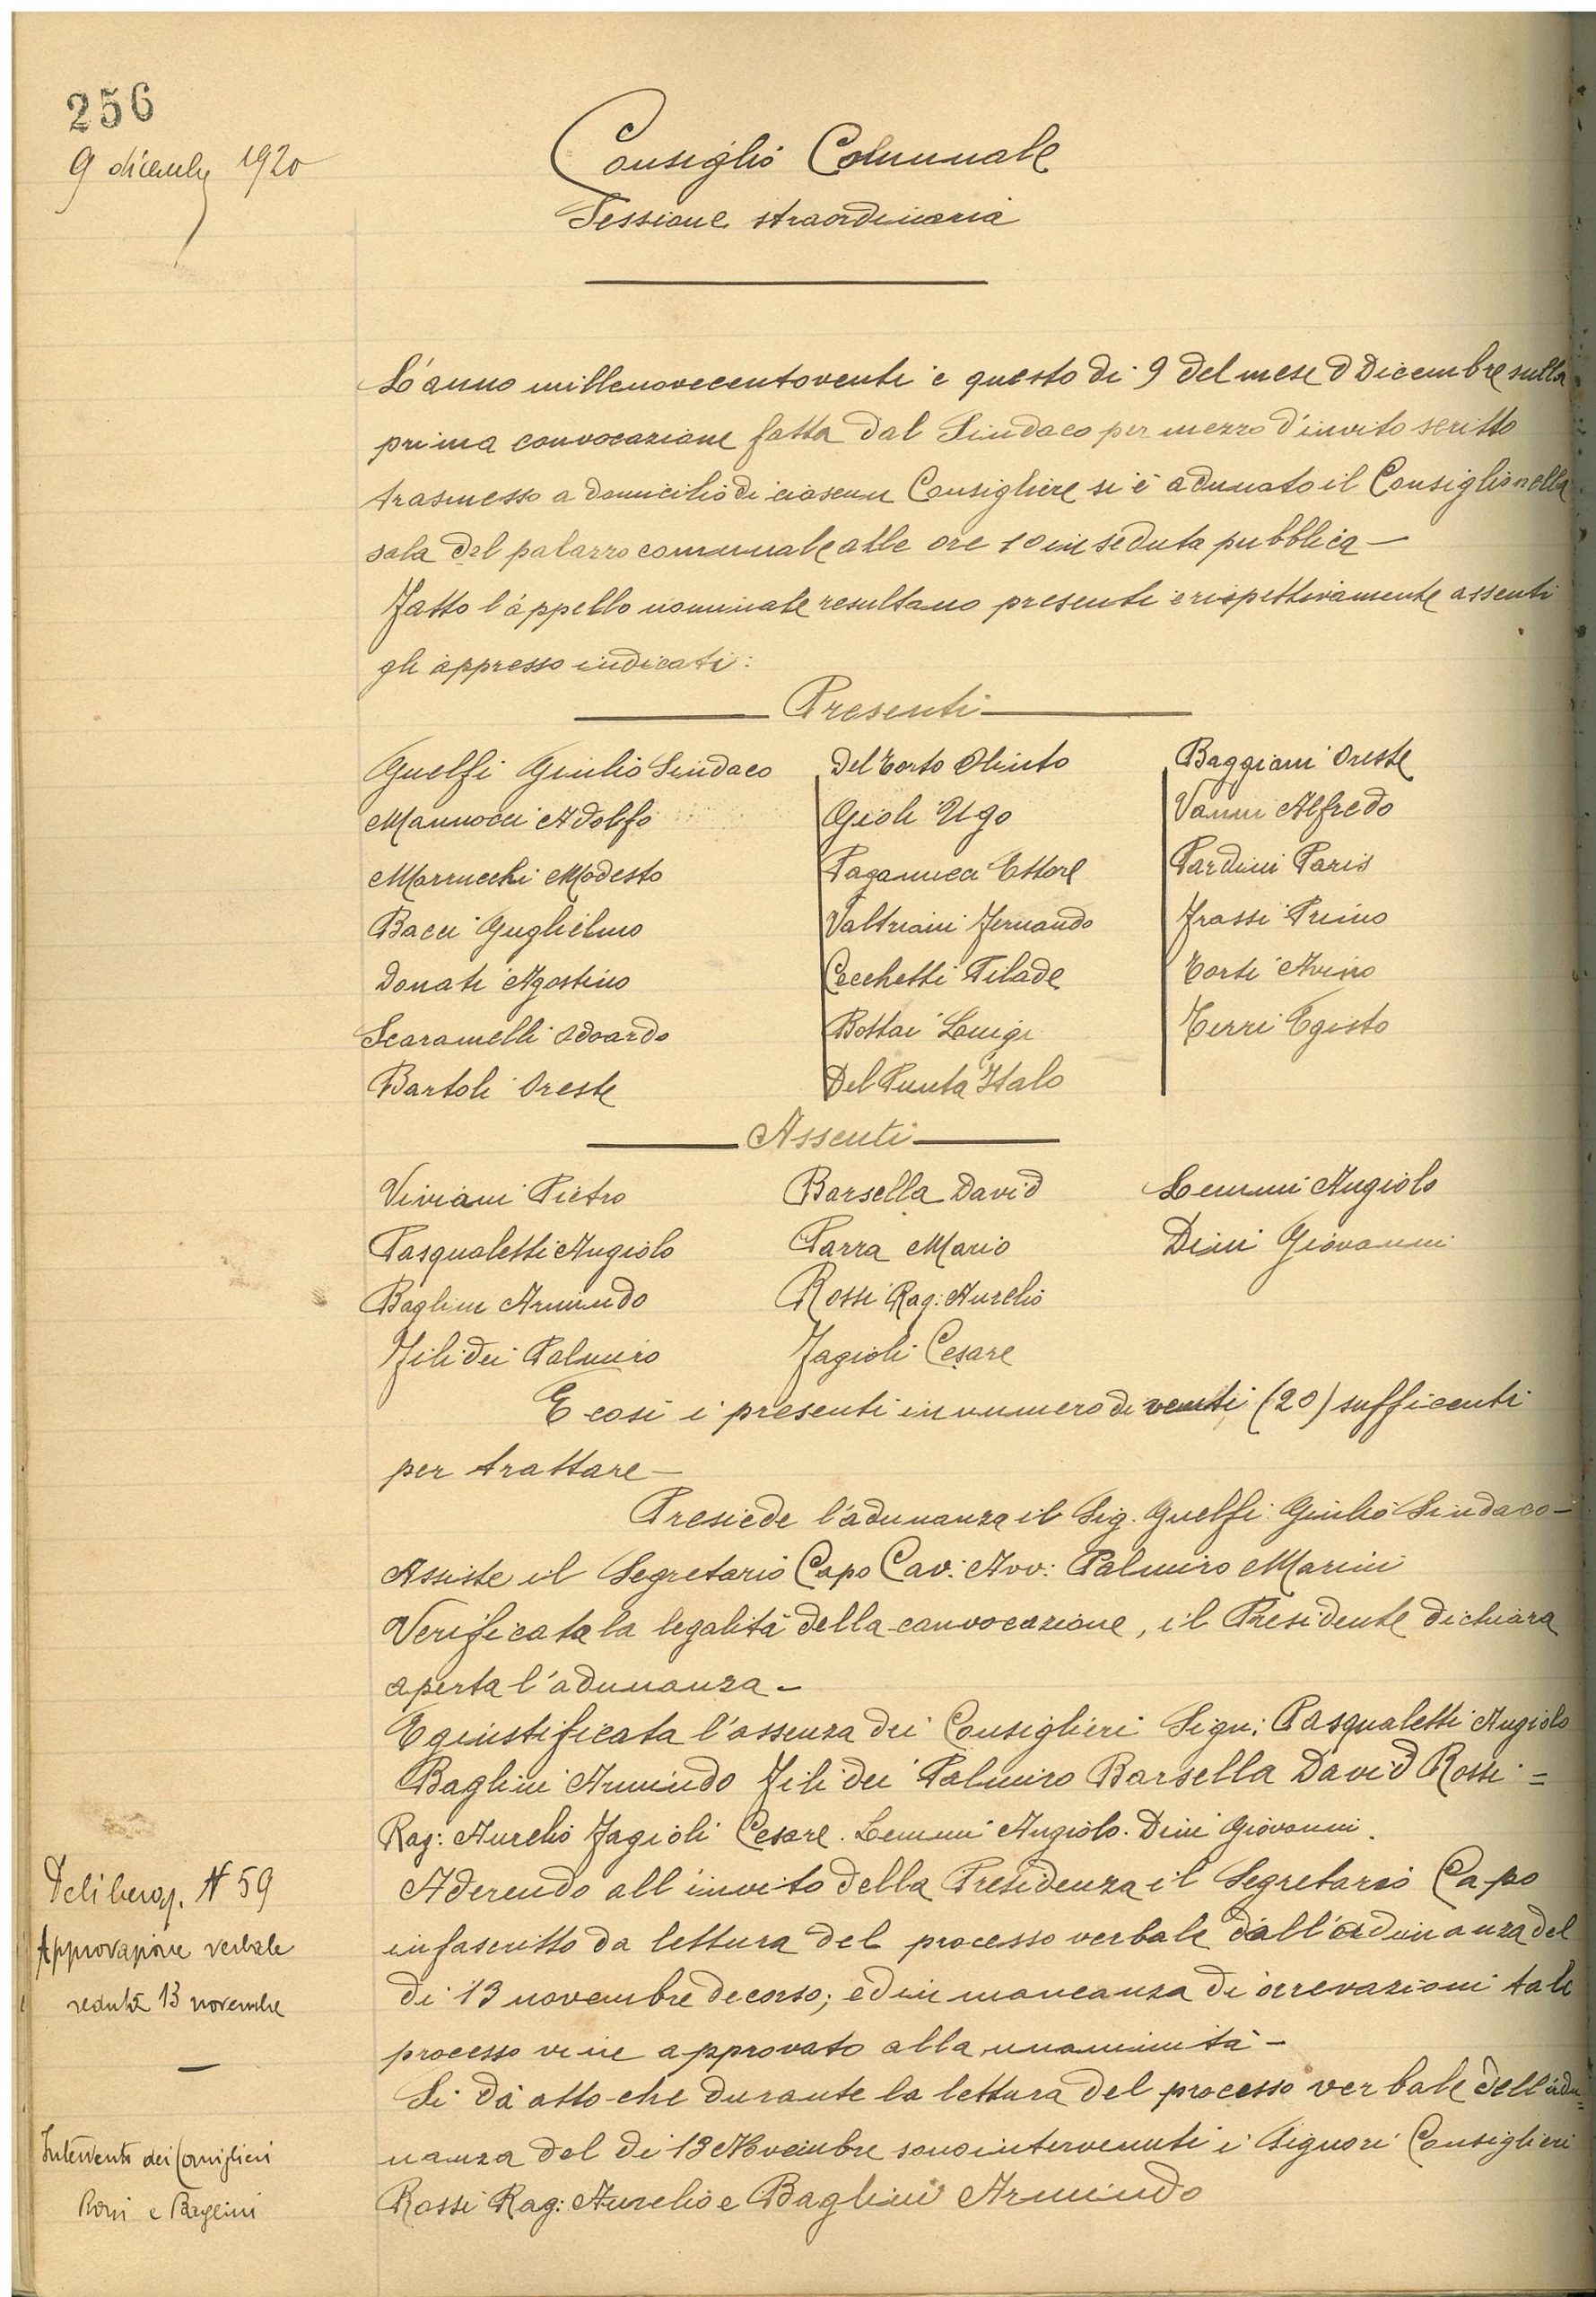 256
9 dicembre 1920
Consiglio Comunale
Sessione straordinaria
L'anno millenovecentoventi e questo dì 9 del mese d Dicembre sulla
prima convocazione fatta dal Sindaco per mezzo d'invito scritto
trasmesso a domicilio di ciascun Consigliere si è adunato il Consiglio nella
sala del palazzo comunale alle ore 10 in seduta pubblica —
Fatto l'appello nominale resultano presenti e rispettivamente assenti
gli appresso indicati:
Presenti
Guelfi Giulio Sindaco Del Corto Olinto Baggiani Oreste
Mannocci Adolfo Gioli Ugo Vanni Alfredo
Marrucchi Modesto Paganucci Ettore Pardini Paris
Bacci Guglielmo Valtriani Fernando Frassi Primo
Donati Agostino Cecchetti Pilade Corti Avino
Scaramelli Odoardo Bottai Luigi Cerri Egisto
Bartoli Oreste Del Punta Italo
Assenti
Viviani Pietro Barsella David Lemmi Angiolo
Pasqualetti Angiolo Parra Mario Dini Giovanni
Baglini Armindo Rossi Rag: Aurelio
Filidei Palmiro Fagioli Cesare
E così i presenti in numero di venti (20) sufficenti
per trattare —
Presiede l'adunanza il Sig. Guelfi Giulio Sindaco —
Assiste il Segretario Capo Cav: Avv: Palmiro Marini
Verificata la legalità della convocazione, il Presidente dichiara
aperta l'adunanza —
E giustificata l'assenza dei Consiglieri Sign: Pasqualetti Angiolo
Baglini Armindo Filidei Palmiro Barsella David Rossi =
Rag: Aurelio Fagioli Cesare. Lemmi Angiolo. Dini Giovanni.
Aderendo all'invito della Presidenza il Segretario Capo
infascritto da lettura del processo verbale dall'ordinanza del
dì 13 novembre decorso; ed in mancanza di orrevazioni tale
processo vine approvato alla unanimità —
Si dà atto che durante la lettura del processo verbale dell'adu=
nanza del dì 13 Novembre sono intervenuti i Signori Consiglieri
Rossi Rag: Aurelio e Baglini Armindo
Deliberaz. N 59
Approvazione verbale
seduta 13 novembre
—
Intervento dei Consiglieri
Rossi e Baglini